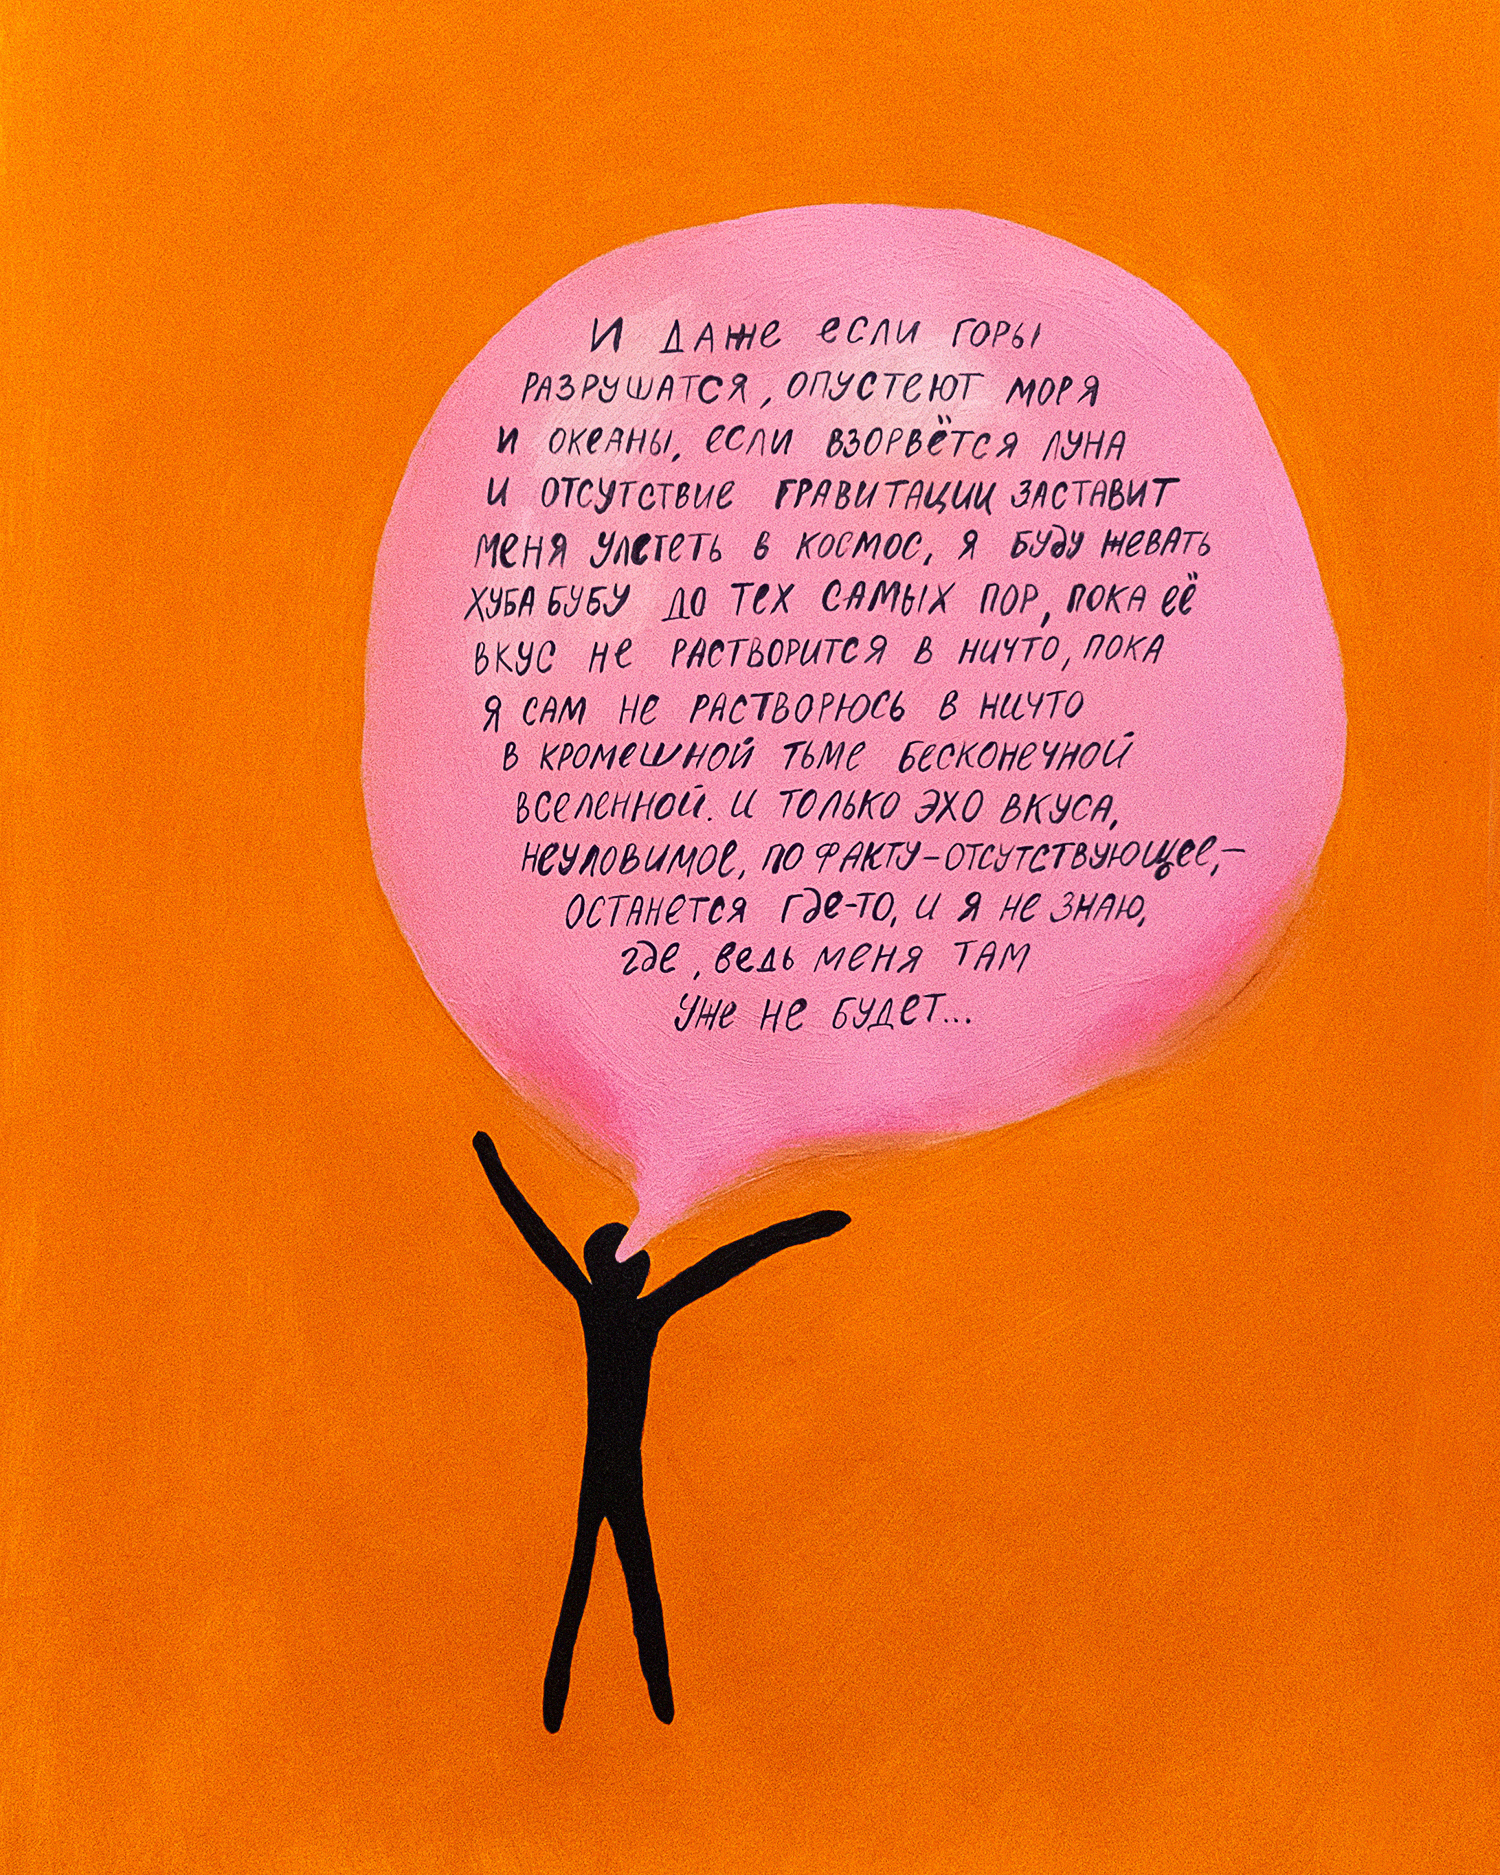 И даже если горы
разрушатся, опустеют моря
и океаны, если взорвётся луна
и отсутствие гравитации заставит
меня улететь в космос, я буду жевать
хуба бубу до тех самых пор, пока её
вкус не растворится в ничто, пока
я сам не растворюсь в ничто
в кромешной тьме бесконечной
вселенной. И только эхо вкуса,
неуловимое, по факту – отсутствующее, –
останется где-то, и я не знаю,
где, ведь меня там
уже не будет...